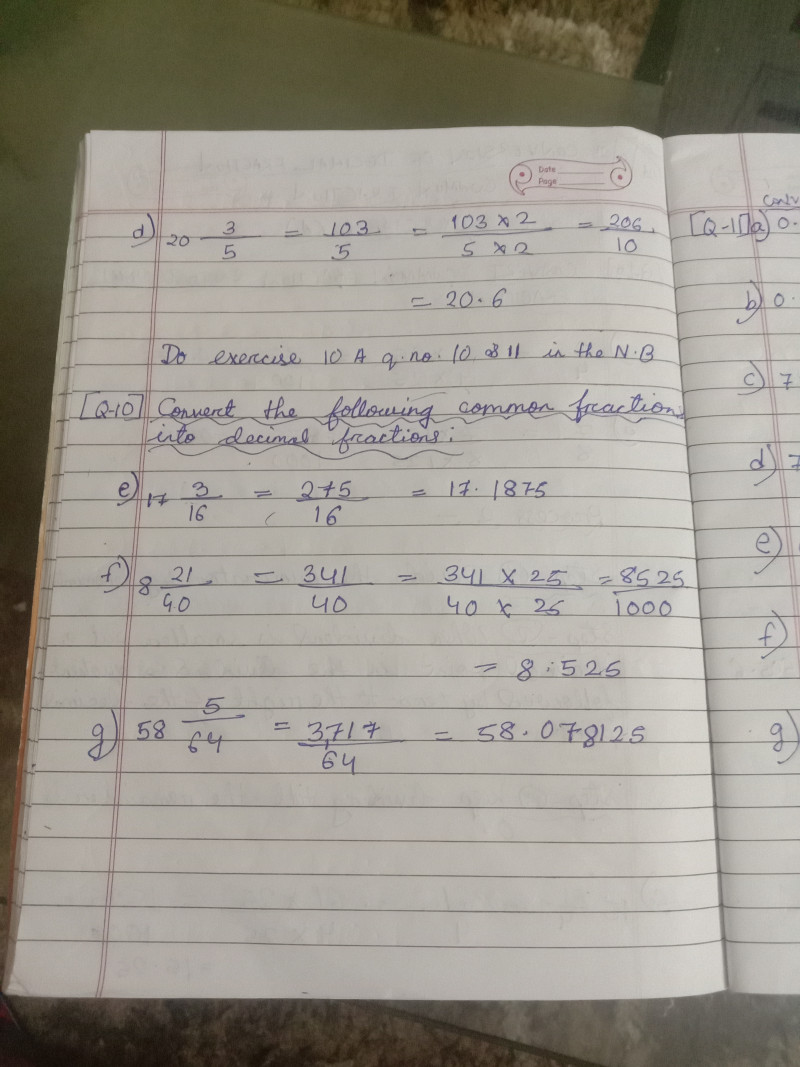 Date
Page
d) 20 3/5 = 103/5 = 103 × 2/5 × 2 = 206/10
= 20.6
Do exercise 10 A q. no. 10 & 11 in the N.B
[Q-10] Convert the following common fractions
into decimal fractions:
e) 17 3/16 = 275/16 = 17.1875
f) 8 21/40 = 341/40 = 341 × 25/40 × 25 = 8525/1000
= 8.525
g) 58 5/64 = 3717/64 = 58.078125
[Q-1] a) 0.
b) 0.
c) 7
d) 7
e)
f)
g)